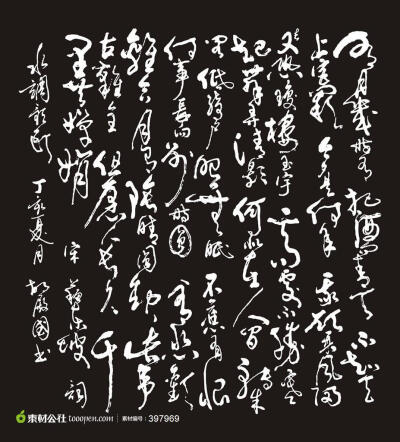 明月幾時有把酒問青天不知天
上宮闕今夕是何年我欲乘風歸
去又恐瓊樓玉宇高處不勝寒
起舞弄清影何似在人間轉朱
閣低綺戶照無眠不應有恨
何事長向別時圓人有悲歡
離合月有陰晴圓缺此事
古難全但願人長久千
里共嬋娟 宋 蘇東坡 詞
水調歌頭 丁亥夏月 國書
素材公社 tooopen.com 素材编号：397969